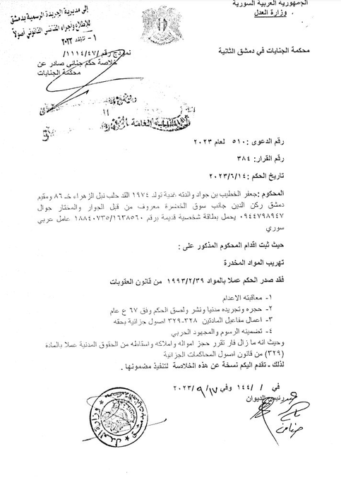 الجمهورية العربية السورية
وزارة العدل
إلى مديرية الجريدة الرسمية بدمشق
للاطلاع وإجراء النشر القانوني أصولاً
محكمة الجنايات في دمشق الثانية
نموذج رقم /١١١٤/٤٧
خلاصة حكم جنائي صادر عن
محكمة الجنايات
رقم الدعوى : ٥١٠ لعام ٢٠٢٣
رقم القرار : ٣٨٤
تاريخ الحكم : ٢٠٢٣/٦/١٤
المحكوم :جعفر الخطيب بن جواد والدته تولد ١٩٧٤ القيد حلب نبل الزهراء خ ٨٦ ومقيم
دمشق ركن الدين جانب سوق الخضرة معروف من قبل الجوار والمختار جوال
٠٩٤٤٧٩٨٩٤٧ يحمل بطاقة شخصية قديمة برقم عامل عربي
سوري
حيث ثبت اقدام المحكوم المذكور على :
تهريب المواد المخدرة
فقد صدر الحكم عملا بالمواد ١٩٩٣/٢/٣٩ من قانون العقوبات
١- معاقبته الاعدام
٢- حجره وتجريده مدنيا ونشر ولصق الحكم وفق ٦٧ ع عام
٣- اعمال مفاعيل المادتين ٣٢٨-٣٢٩ اصول جزائية بحقه
٤- تضمينه الرسوم والمجهود الحربي
وحيث انه ما زال فار تقرر حجز امواله واملاكه واسقاطه من الحقوق المدنية عملا بالمادة
(٣٢٩) من قانون اصول المحاكمات الجزائية
لذلك - تقدم اليكم نسخة عن هذه الخلاصة لتنفيذ مضمونها .
في / /١٤٤ وفي /٩/ ٢٠٢٣
رئيس الديوان